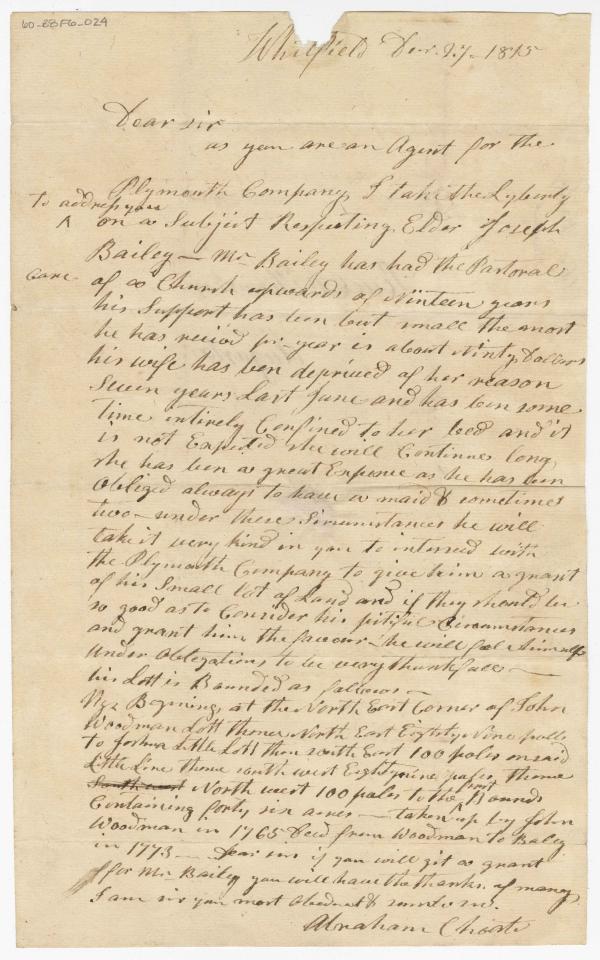 60-28F6-024
Whitfield Dec. 27. 1815
Dear sir
as you are an Agent for the
Plymouth Company, I take the Lyberty
to address you
^ on a Subject Respecting Elder Joseph
Bailey — Mr Bailey has had the Pastoral
care
of a Church upwards of Ninteen years
his Support has ben but small the most
he has reciv'd pr year is about Ninty Dollars
his wife has ben deprived of her reason
Seven years Last June and has ben some
time intirely Confined to her bed and it
is not Expected she will Continue long,
she has ben a great Expence as he has ben
Obliged always to have a maid & sometimes
two — under these Sircumstances he will
take it very kind in you to interseed with
the Plymouth Company to give him a grant
of his Small lot of Land and if they should be
so good as to Consider his pitiful Circumstances
and grant him the favour he will feel himself
under Obligations to be very thankfull —
his Lott is Bounded as follows —
Begining at the North East Corner of John
Woodman Lott thence North East Eighty Nine polls
to Joshua Little Lott then south East 100 poles on said
Little Line thence south west Eighty nine poles, thence
South west North west 100 poles to the ^ first Bounds
Containing forty six acres — taken up by John
Woodman in 1765 Deed from Woodman to Baley
in 1773 — Dear sir if you will git a grant
for Mr Bailey you will have the thanks of many
I am sir you most Obednt &
Abraham Choate